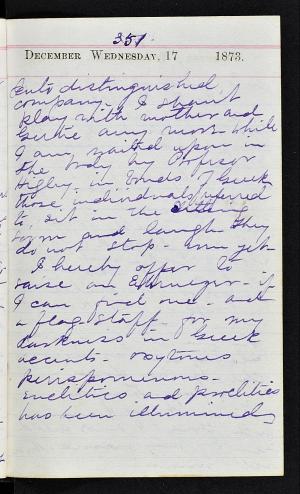 351.
DECEMBER WEDNESDAY, 17 1873.
into distinguished
company - I shan't
play with mother and
Gertie any more. While
I am waited upon in
the body by Profisor
Higley, in words of Greek
those individuals referred
to, sit in the sitting
room and laugh. They
do not stop - 
I hereby offer to
raise an - if
I can find one - and
a flag staff for my
darkness in Greek
accents - oxytones
perispomenons -
enclitics and proclitics
has been illumined